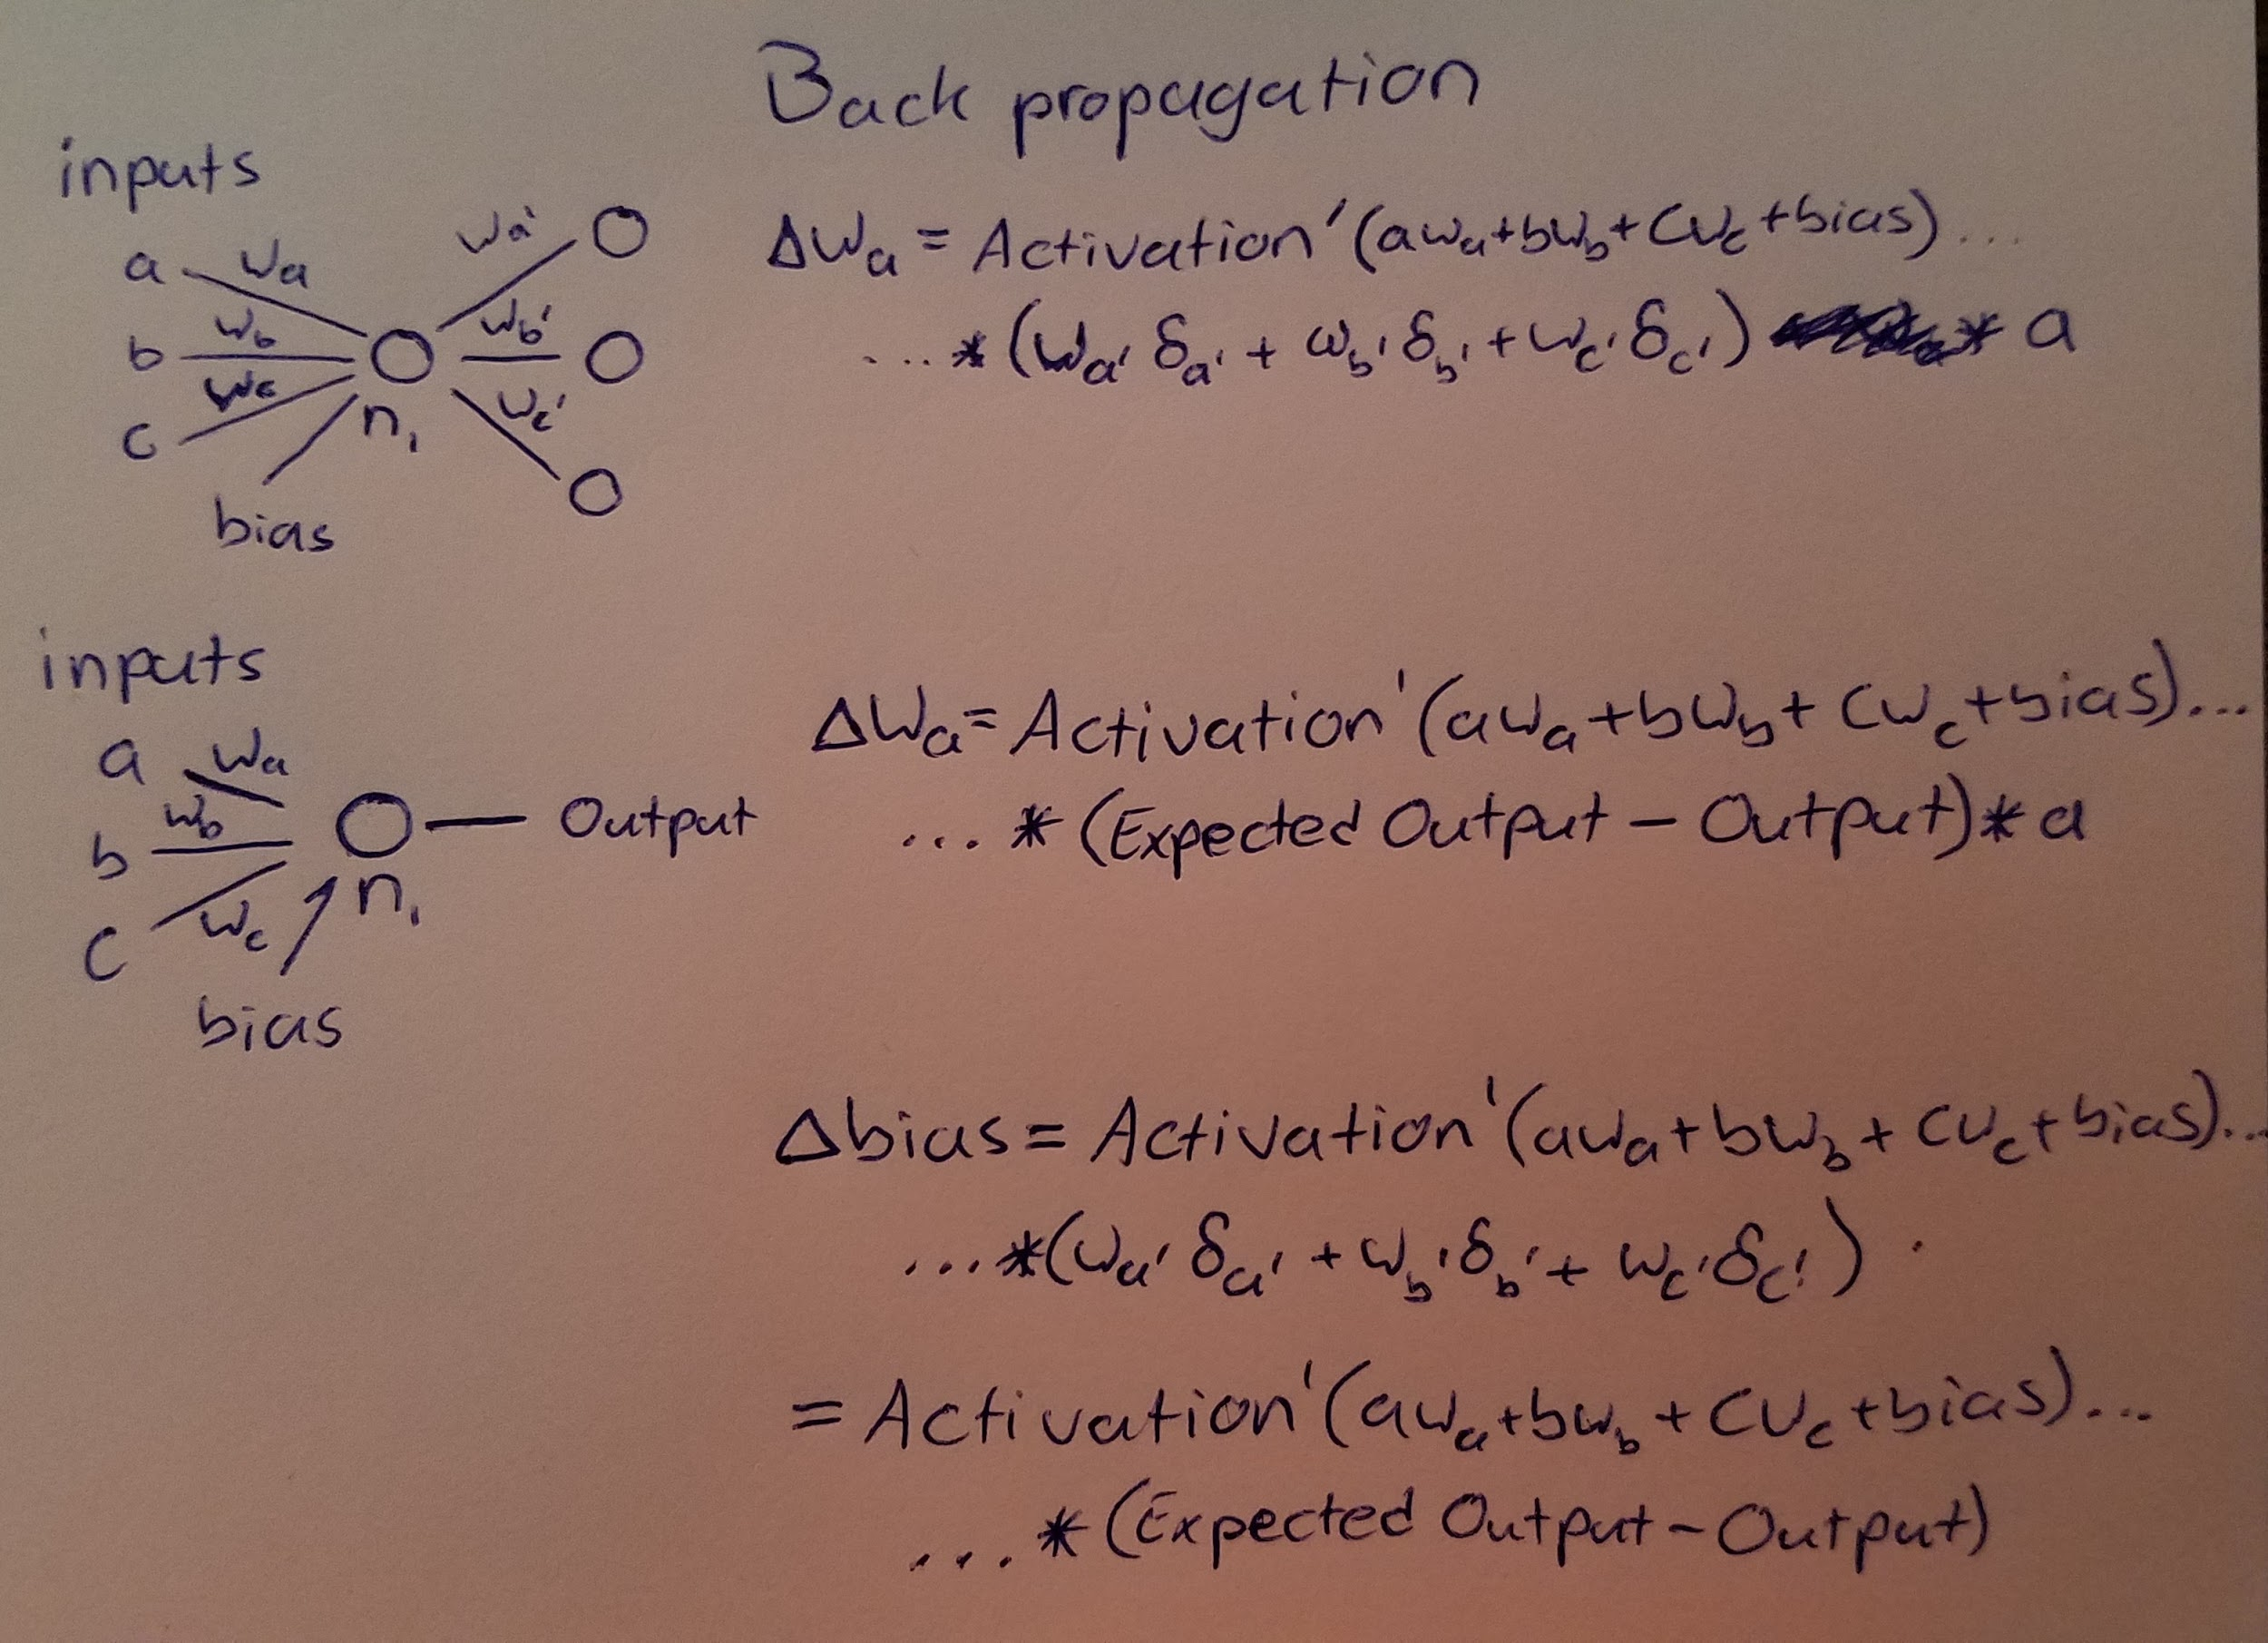 Back propagation
inputs
a wa wa'
b wb wb'
c wc n1 wc'
bias
Δwa = Activation'(awa+bwb+cwc+bias)...
...*(wa' δa' + wb' δb' + wc' δc') * a
inputs
a wa
b wb Output
c wc n1
bias
Δwa = Activation'(awa+bwb+cwc+bias)...
...*(Expected Output - Output)*a
Δbias = Activation'(awa+bwb+cwc+bias)...
...*(wa' δa' + wb' δb' + wc' δc')
= Activation'(awa+bwb+cwc+bias)...
...*(Expected Output - Output)